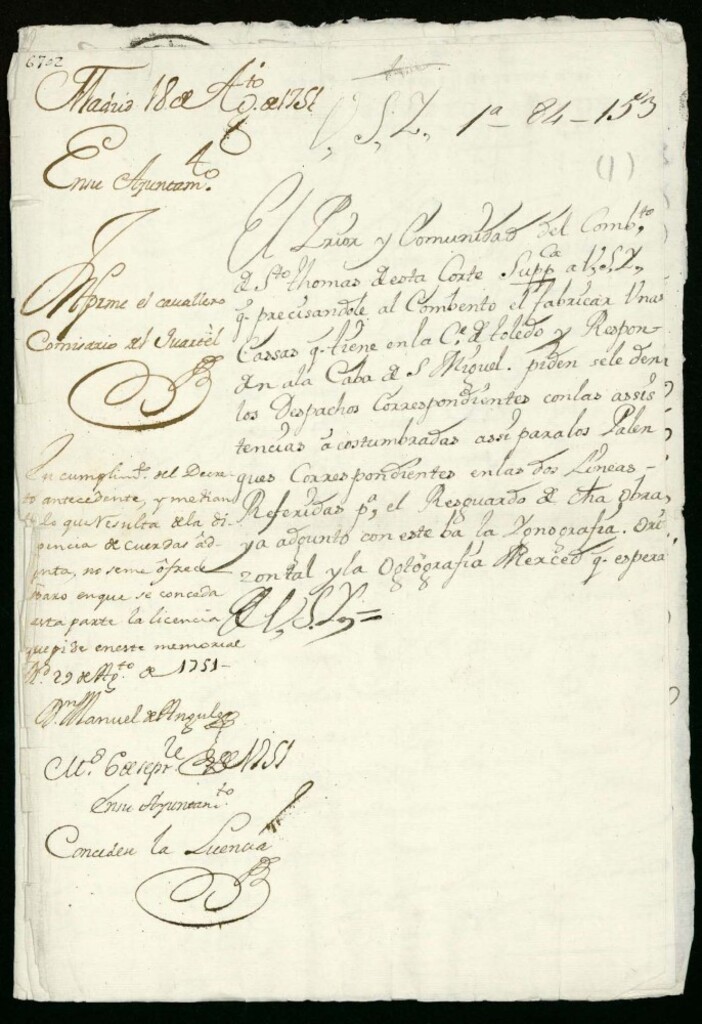 6702
Madrid 18 de Ag.to de 1751
V, S, Z, 1ª 84-153
(1)
Ensu Ayuntam.to
Ynforme el cavallero
Comisario del Quartel
El Prior y Comunidad del Comb.to
de S.to thomas de esta Corte Supp.ca a V,S,Z,
q. precisandole al Combento el fabricar Unas
Cassas q. tiene en la C.e de toledo y Respon-
den a la Caba de S Miguel. piden se le den
los Despachos Correspondientes con las assis
tencias acostumbradas assi para los Palen
ques Correspondientes en las dos Lineas -
Referidas p.a el Resguardo de dha Obra,
ya adjunto con este ba la Zonografia. Ori
zontal y la Ortografia Merced q. espera
de V,S,Z,=
En cumplim.to del Decre-
to antecedente, y median
te lo que Resulta de la di-
gencia de Cuerdas ad-
junta, no se me ofrece
paro en que se conceda
esta parte la licencia
que pide en este memorial
M.d 29 de Ag.to de 1751-
D.n Manuel de Angulo
M.d 6 de sep.re de 1751
Ensu Ayuntam.to
Concedese la Licencia